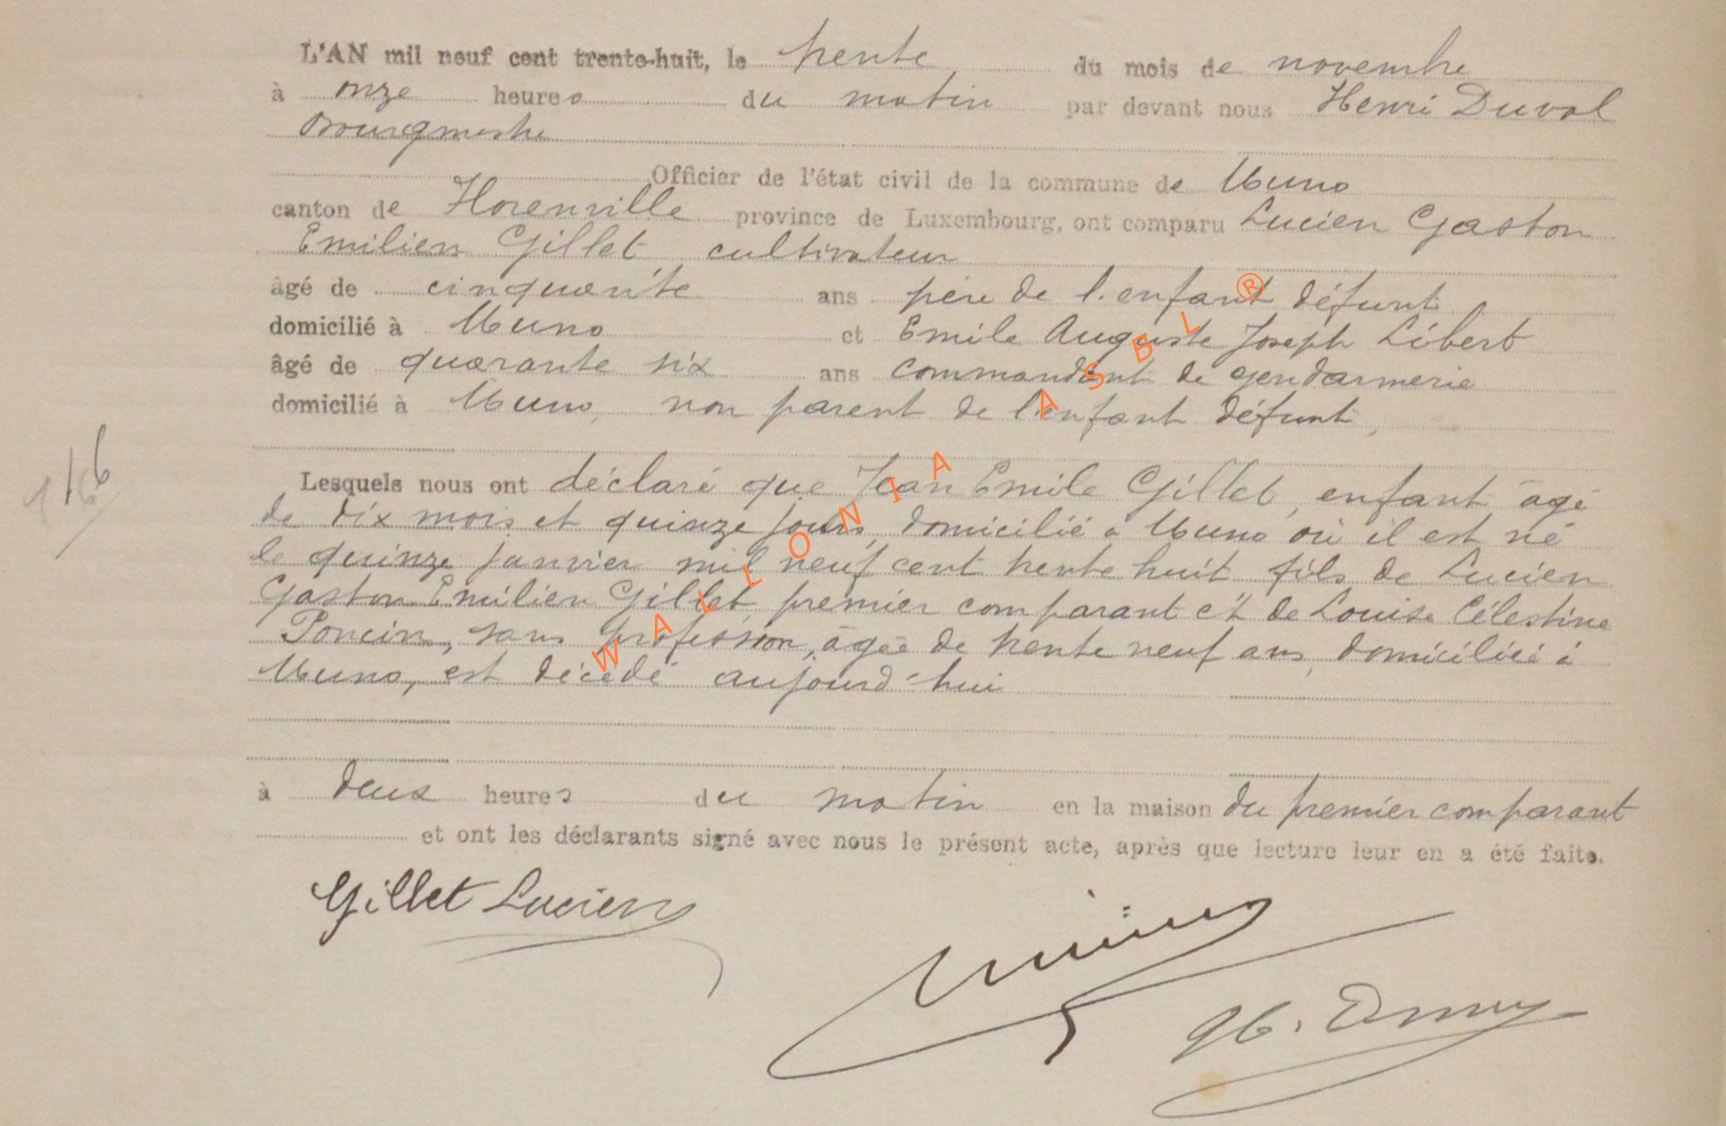 L'AN mil neuf cent trente-huit, le trente du mois de novembre
à onze heures du matin par devant nous Henri Duval
Bourgmestre
Officier de l'état civil de la commune de Muno
canton de Florenville province de Luxembourg, ont comparu Lucien Gaston
Emilien Gillet cultivateur
âgé de cinquante ans père de l'enfant défunt
domicilié à Muno et Emile Auguste Joseph Libert
âgé de quarante six ans commandant de gendarmerie
domicilié à Muno, non parent de l'enfant défunt,
Lesquels nous ont déclaré que Jean Emile Gillet, enfant âgé
de dix mois et quinze jours, domicilié à Muno où il est né
le quinze janvier mil neuf cent trente huit fils de Lucien
Gaston Emilien Gillet, premier comparant et de Louise Célestine
Poncin, sans profession, âgée de trente neuf ans, domiciliée à
Muno, est décédé aujourd'hui
à deux heures du matin en la maison du premier comparant
et ont les déclarants signé avec nous le présent acte, après que lecture leur en a été faite.
Gillet Lucien
116
WALLONIA ASBL ®